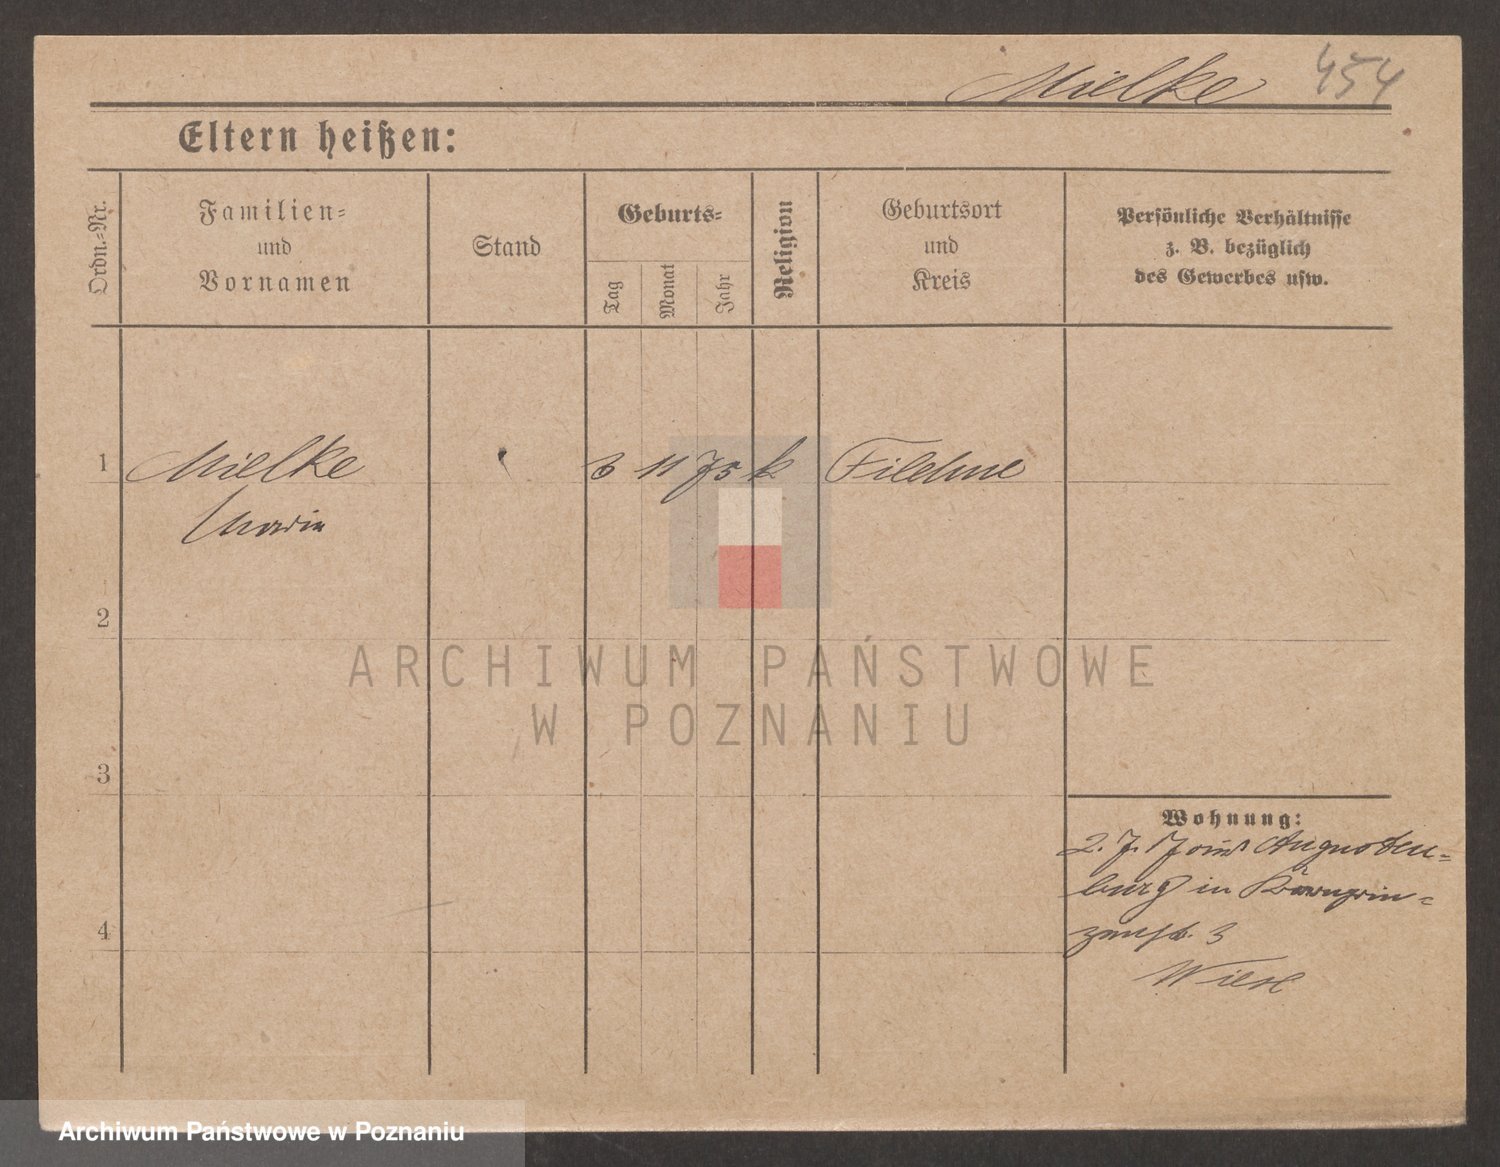 Mielke 454
Eltern heißen:
Ordn.-Nr.
Familien-
und
Vornamen
Stand
Geburts-
Tag
Monat
Jahr
Religion
Geburtsort
und
Kreis
Persönliche Verhältnisse
z. B. bezüglich
des Gewerbes usw.
1 Mielke 6 11 75 k Filehne
Maria
2
3
4
Wohnung:
2. 7. Augusten-
burg in Kronprin-
zenstr. 3
ARCHIWUM PAŃSTWOWE
W POZNANIU
Archiwum Państwowe w Poznaniu